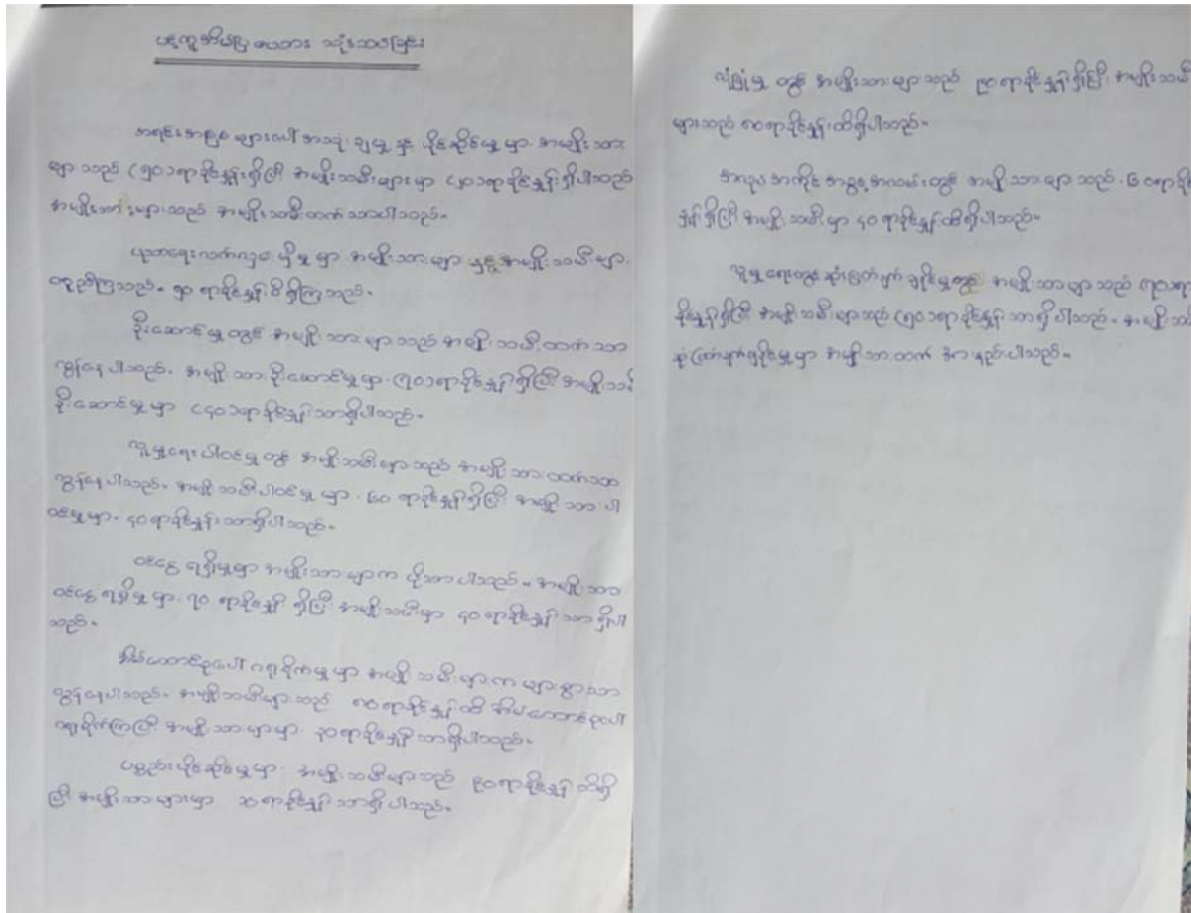 ပင့်ကူအိမ်ပြ ပေဘား သုံးသပ်ခြင်း
အရင်းအမြစ် များပေါ် အသုံး ချမှု နှင့် ပိုင်ဆိုင်မှုမှာ အမျိုး သား
များ သည် (၅၀)ရာခိုင်နှုန်းရှိပြီး အမျိုးသမီးများမှာ (၂၀)ရာခိုင်နှုန်း ရှိပါသည်
အမျိုးသားများသည် အမျိုးသမီးထက် သာပါသည်။
ပညာရေးလက်လှမ်း မှီမှု မှာ အမျိုးသားများ နှင့် အမျိုးသမီးများ
တူညီကြသည်။ ၅၀ ရာခိုင်နှုန်းစီရှိကြသည်။
ဦးဆောင်မှု တွင် အမျိုးသား များသည် အမျိုးသမီးထက် သာ
လွန်နေပါသည်။ အမျိုးသား ဦးဆောင်မှုမှာ (၇၀)ရာခိုင်နှုန်းရှိပြီး အမျိုးသမီး
ဦးဆောင်မှုမှာ (၄၀)ရာခိုင်နှုန်းသာရှိပါသည်။
လူမှုရေးပါဝင်မှု တွင် အမျိုးသမီးများသည် အမျိုးသားထက်သာ
လွန်နေပါသည်။ အမျိုးသမီးပါဝင်မှုမှာ ၆၀ ရာခိုင်နှုန်းရှိပြီး အမျိုးသားပါ
ဝင်မှုမှာ ၄၀ရာခိုင်နှုန်းသာရှိပါသည်။
ဝင်ငွေ ရရှိမှုမှာ အမျိုးသားများက ပိုသာပါသည်။ အမျိုးသား
ဝင်ငွေရရှိမှုမှာ ၇၀ ရာခိုင်နှုန်း ရှိပြီး အမျိုးသမီးမှာ ၄၀ရာခိုင်နှုန်းသာရှိပါ
သည်။
အိမ်ထောင်စုပေါ် ဂရုစိုက်မှုမှာ အမျိုးသမီးများက များစွာသာ
လွန်နေပါသည်။ အမျိုးသမီးများသည် ၈၀ရာခိုင်နှုန်းထိ အိမ်ထောင်စုပေါ်
ဂရုစိုက်ကြပြီး အမျိုးသားများမှာ ၃၀ရာခိုင်နှုန်းသာရှိပါသည်။
ပစ္စည်းပိုင်ဆိုင်မှုမှာ အမျိုးသမီးများသည် ၉၀ရာခိုင်နှုန်းထိရှိ
ပြီး အမျိုးသားများမှာ ရာခိုင်နှုန်းသာရှိပါသည်။
လုံခြုံမှု တွင် အမျိုးသားများသည် ၉၀ရာခိုင်နှုန်းရှိပြီး အမျိုးသမီး
များသည် ၈၀ရာခိုင်နှုန်းထိရှိပါသည်။
အလုပ်အကိုင် အခွင့်အလမ်းတွင် အမျိုးသားများသည် ၆၀ရာခိုင်
နှုန်းရှိပြီး အမျိုးသမီးမှာ ၄၀ရာခိုင်နှုန်းထိရှိပါသည်။
လူမှုရေးတွင် ဆုံးဖြတ်ချက် ချနိုင်မှုတွင် အမျိုးသားများသည် (၇၀)ရာ
ခိုင်နှုန်းရှိပြီး အမျိုးသမီးများသည် (၅၀)ရာခိုင်နှုန်းသာရှိပါသည်။ အမျိုးသမီး
ဆုံးဖြတ်ချက်ချနိုင်မှုမှာ အမျိုးသားထက် နည်းပါသည်။